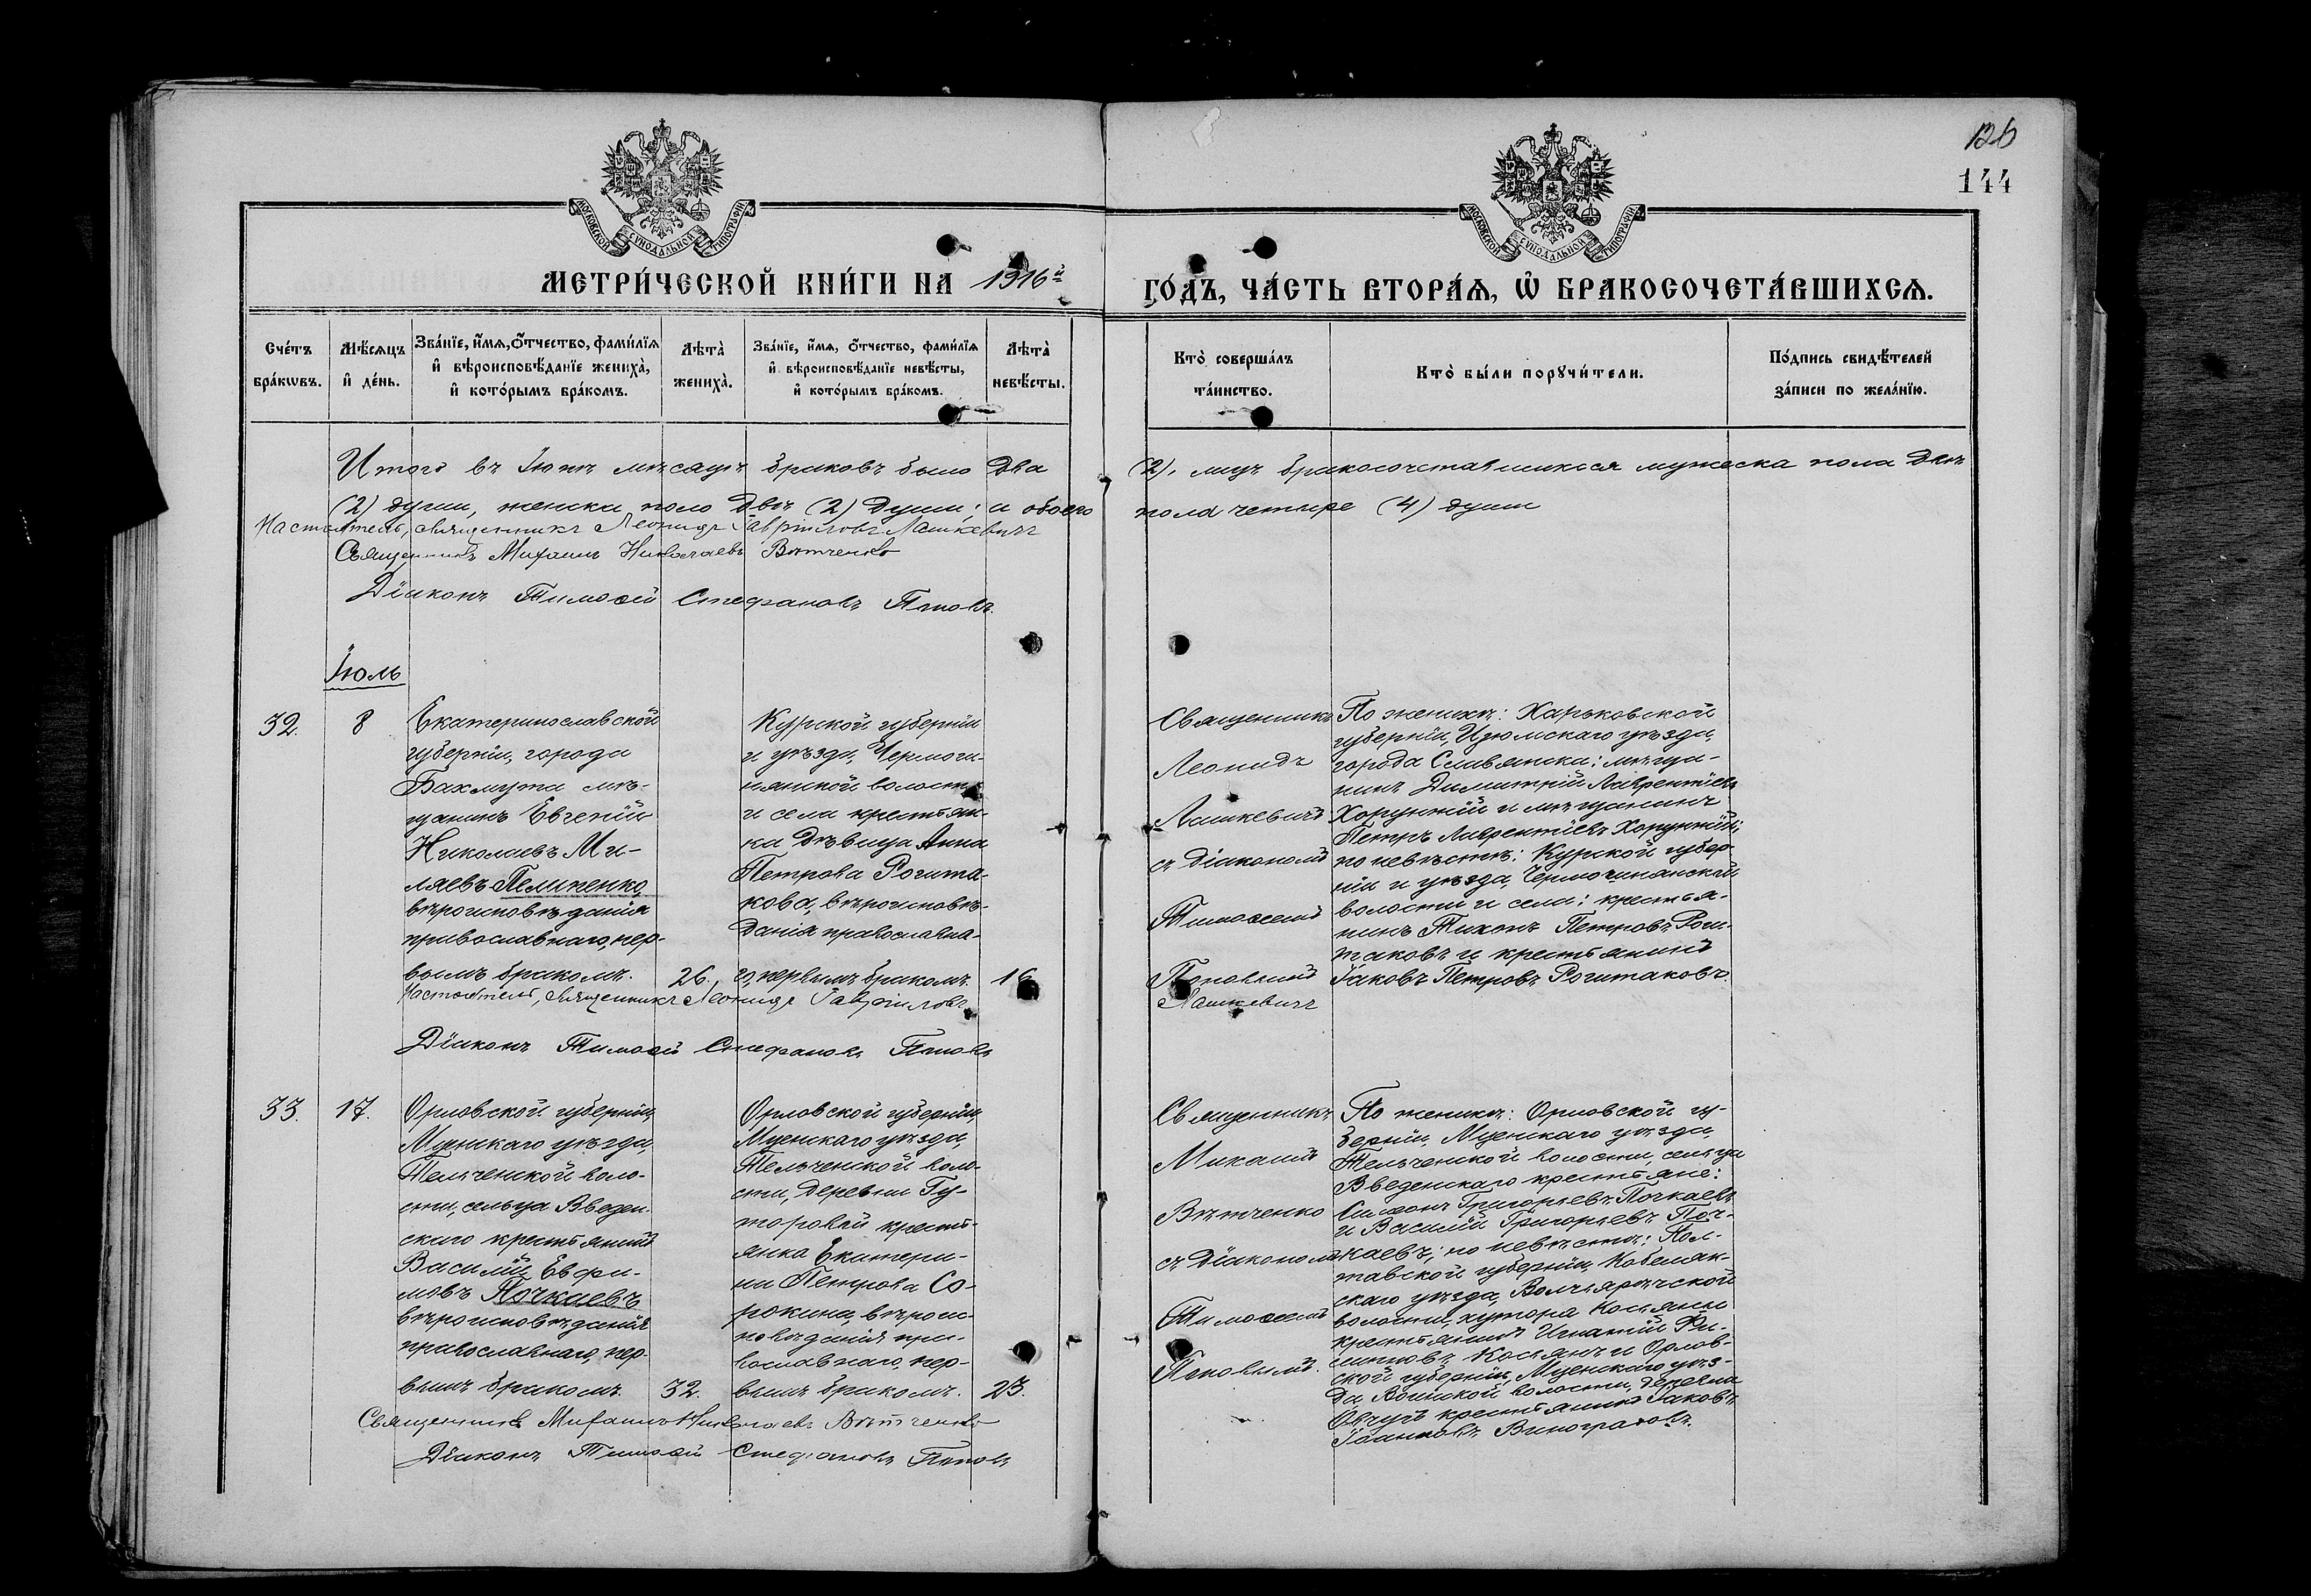 126
144
МОСКОВСКОЙ СѴНОДАЛЬНОЙ ТИПОГРАФІИ
МОСКОВСКОЙ СѴНОДАЛЬНОЙ ТИПОГРАФІИ
МЕТРИ́ЧЕСКОЙ КНИ́ГИ НА 1916й
ГО́ДЪ, ЧА́СТЬ ВТОРА́Я, Ѡ҆ БРАКОСОЧЕТА́ВШИХСЯ.
Сче́тъ
бра́кѡвъ.
Мѣ́сяцъ
и҆ де́нь.
Зва́нїе, и҆́мя, о҆́тчество, фами́лїя
и҆ вѣроисповѣ́данїе жениха̀,
и҆ кото́рымъ бра́комъ.
Лѣта̀
жениха̀.
Зва́нїе, и҆́мя, о҆́тчество, фами́лїя
и҆ вѣроисповѣ́данїе невѣ́сты,
и҆ кото́рымъ бра́комъ.
Лѣта̀
невѣ́сты.
Кто̀ соверша́лъ
та́инство.
Кто̀ бы́ли порꙋчи́тели.
По́дпись свидѣ́телей
за́писи по жела́нїю.
Итого въ Іюнѣ мѣсяцѣ браковъ было два
(2), лицъ бракосочетавшихся мужеска пола двѣ
(2) души, женска пола двѣ (2) души; и обоего
пола четыре (4) души
Настоятель, священникъ Леонидъ Гавріиловъ Лашкевичъ
Священникъ Михаилъ Николаевъ Вѣтченко
Діаконъ Тимоѳей Стефановъ Поповъ.
Іюль
32.
8
Екатеринославской
губерніи, города
Бахмута мѣ-
щанинъ Евгеній
Николаевъ Ми-
ляевъ Пелипенко,
вѣроисповѣданія
православнаго, пер-
вымъ бракомъ.
26.
Курской губерніи
и уѣзда,
волости
и села крестьян-
ка дѣвица Анна
Петрова Рогита-
кова, вѣроисповѣ-
данія православна-
го, первымъ бракомъ.
Священникъ
Леонидъ
Лашкевичъ
съ діакономъ
Тимоѳеемъ
Поповымъ
По женихѣ: Харьковской
губерніи, Изюмскаго уѣзда,
города Славянска: мѣща-
нинъ Димитрій Лаврентіевъ
Хорунжій и мѣщанинъ
Петръ Лаврентіевъ Хорунжій;
по невѣстѣ: Курской губер-
ніи и уѣзда,
волости и села: крестья-
нинъ Тихонъ Петровъ Роги-
таковъ и крестьянинъ
Іаковъ Петровъ Рогитаковъ.
Настоятель, священникъ Леонидъ Гавріиловъ
Лашкевичъ
Діаконъ Тимоѳей Стефановъ Поповъ
33.
17.
Орловской губерніи,
Мценскаго уѣзда,
Тельченской воло-
сти, сельца Введен-
скаго крестьянинъ
Василій Евфи-
мовъ Почкаевъ
вѣроисповѣданія
православнаго, пер-
вымъ бракомъ.
32.
Орловской губерніи,
Мценскаго уѣзда,
Тельченской воло-
сти, деревни Гу-
торовой кресть-
янка Екатери-
на Петрова Со-
рокина, вѣроис-
повѣданія пра-
вославнаго, пер-
вымъ бракомъ.
23.
Священникъ
Михаилъ
Вѣтченко
съ діакономъ
Тимоѳеемъ
Поповымъ.
По женихѣ: Орловской гу-
берніи, Мценскаго уѣзда,
Тельченской волости, сельца
Введенскаго крестьяне:
Симеонъ Григорьевъ Почкаевъ
и Василій Григорьевъ Поч-
каевъ; по невѣстѣ: Пол-
тавской губерніи, Кобеляк-
скаго уѣзда,
волости, хутора Косяны
крестьянинъ Игнатій Фи-
липповъ Косянъ и Орлов-
ской губерніи, Мценскаго уѣз-
да, волости, деревни
крестьянинъ Іаковъ
Іоанновъ Виноградовъ.
Священникъ Михаилъ Николаевъ Вѣтченко
Діаконъ Тимоѳей Стефановъ Поповъ